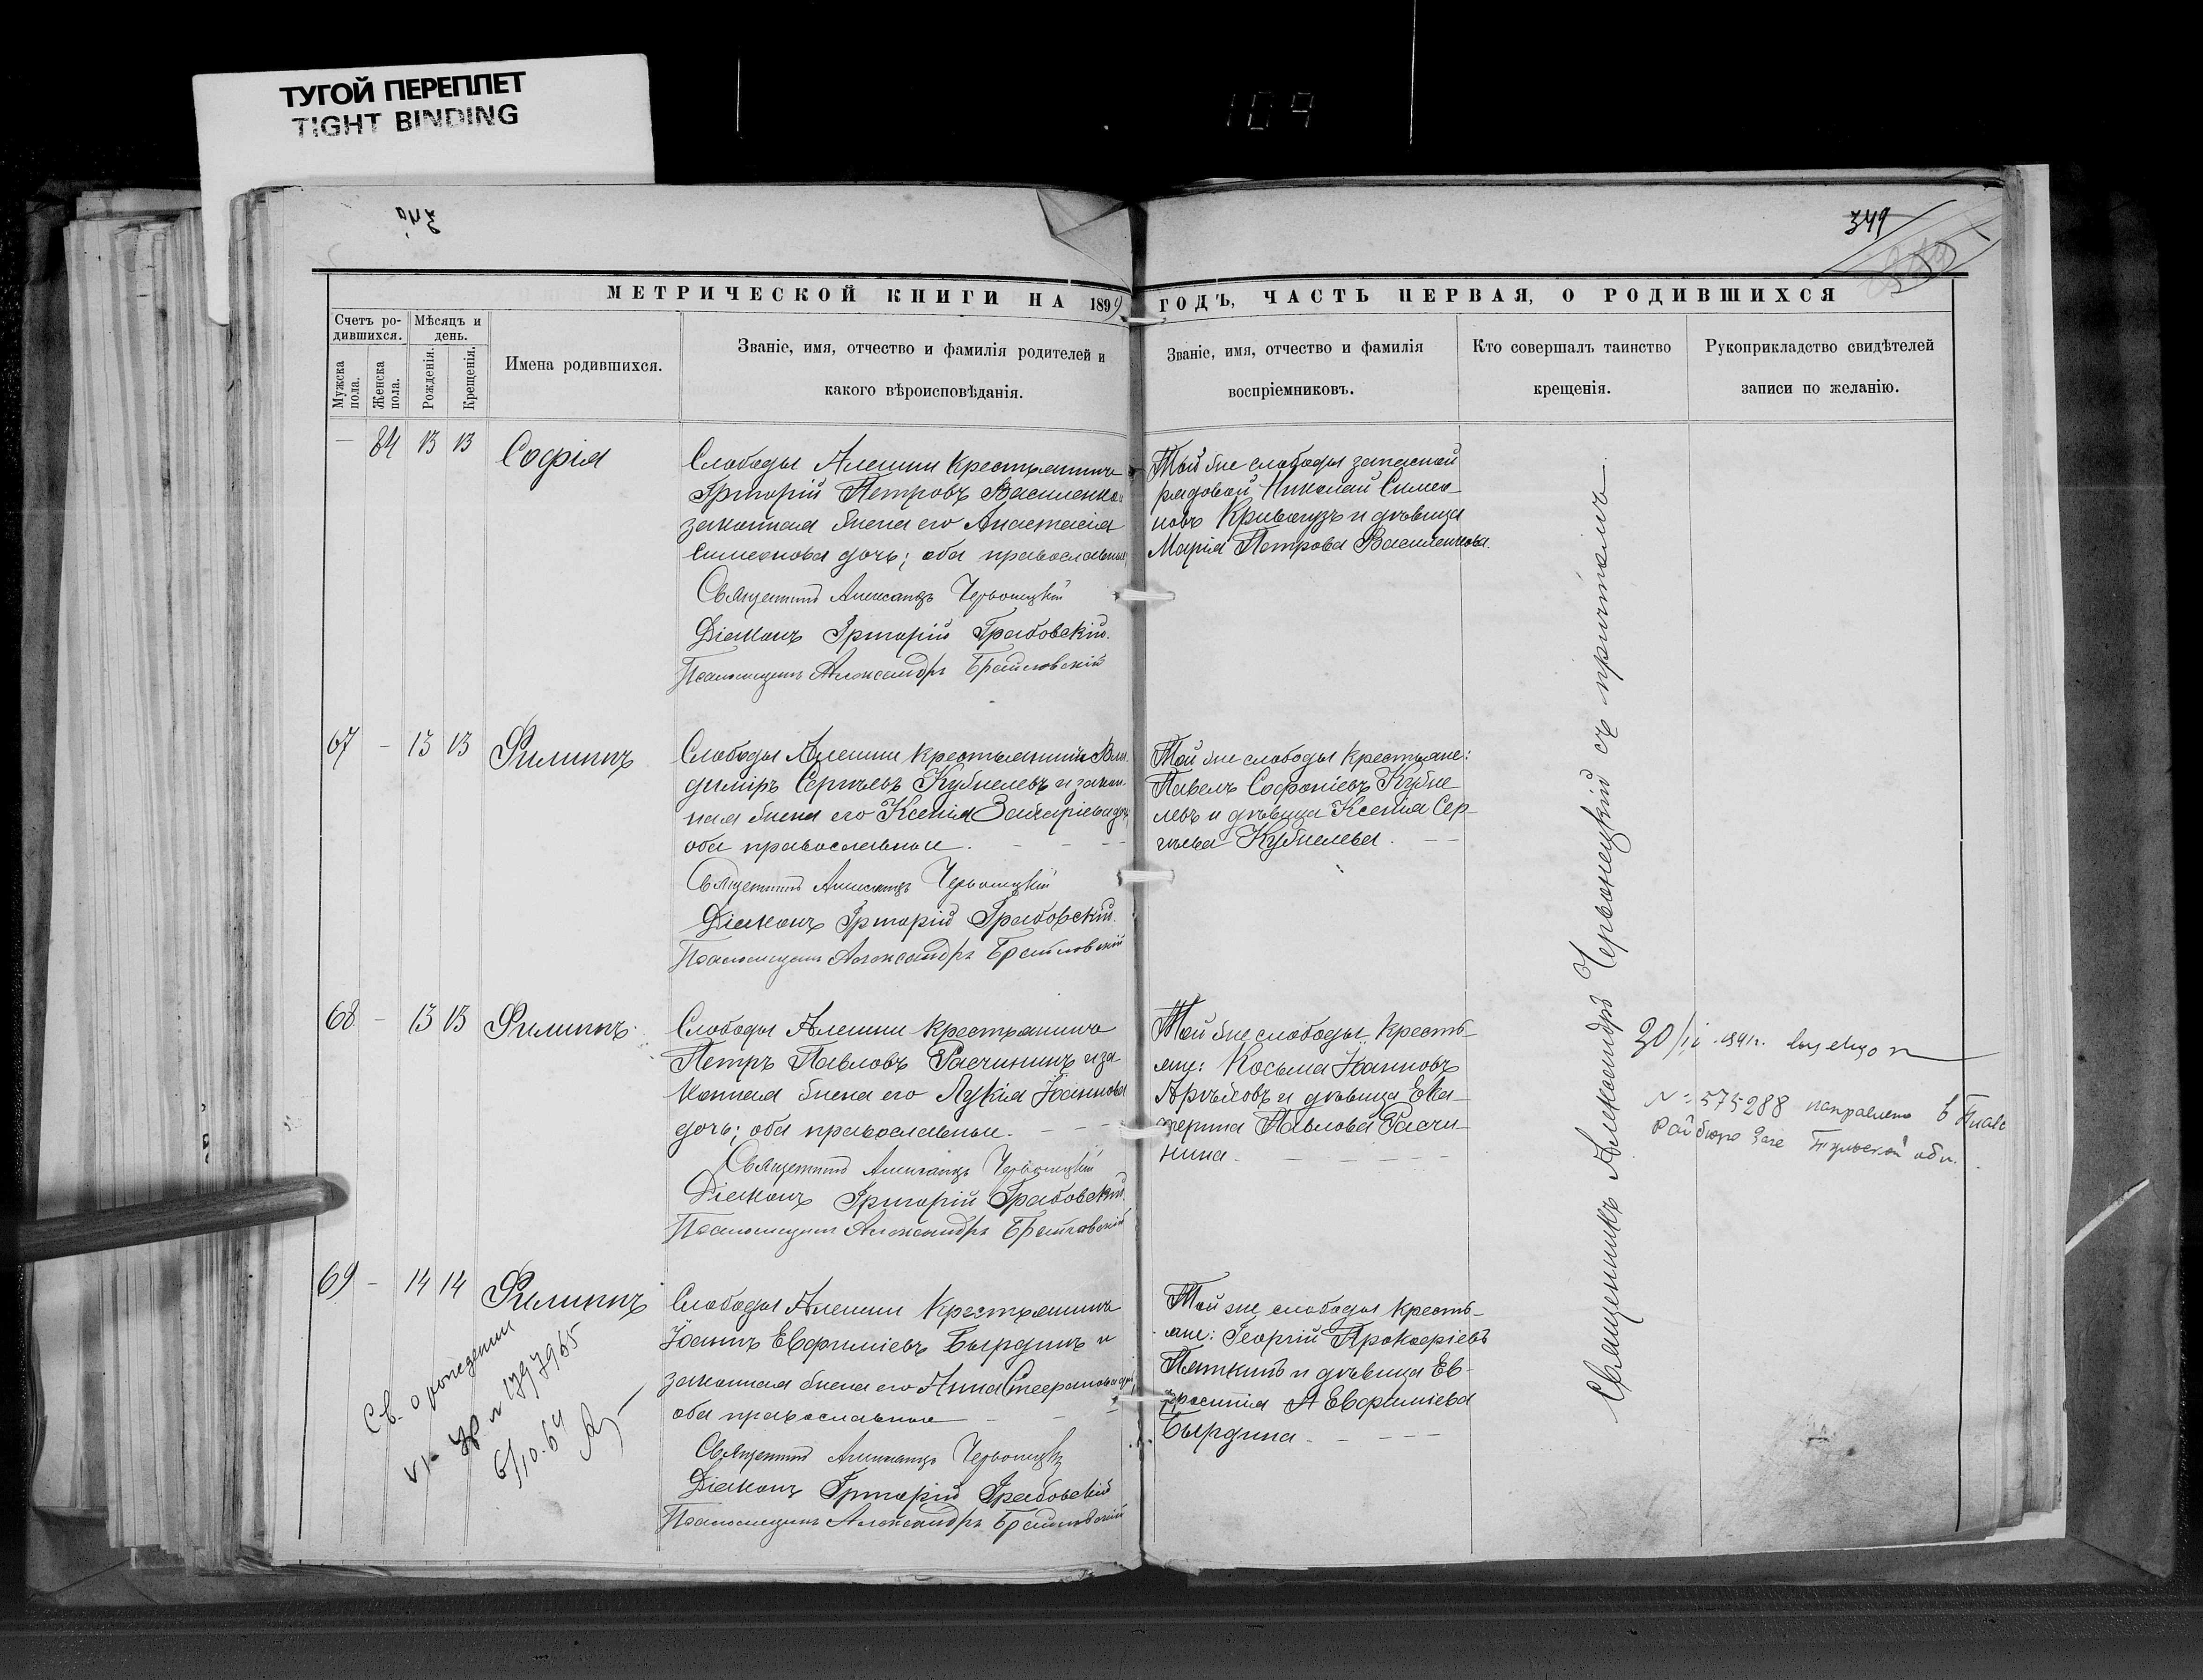 ТУГОЙ ПЕРЕПЛЕТ
TIGHT BINDING
109
349
МЕТРИЧЕСКОЙ КНИГИ НА 1899 ГОДЪ, ЧАСТЬ ПЕРВАЯ, О РОДИВШИХСЯ
Счетъ ро-
дившихся.
Мужска пола.
Женска пола.
Мѣсяцъ и
день.
Рожденія.
Крещенія.
Имена родившихся.
Званіе, имя, отчество и фамилія родителей и
какого вѣроисповѣданія.
Званіе, имя, отчество и фамилія
воспріемниковъ.
Кто совершалъ таинство
крещенія.
Рукоприкладство свидѣтелей
записи по желанію.
— 84 13 13 Софія
Слободы Алешни крестьянинъ
Григорій Петровъ Василенко и
законная жена его Анастасія
Симеонова дочь; оба православные
Священникъ Александръ Червонецкій
Діаконъ Григорій Грабовскій.
Псаломщикъ Александръ Браиловскій
Той же слободы запасной
рядовой Николай Симео-
новъ Кривогузъ и дѣвица
Марія Петрова Василенкова.
67 — 13 13 Филиппъ
Слободы Алешни крестьянинъ Вла-
диміръ Сергѣевъ Кубнелевъ и закон-
ная жена его Ксенія Захаріева доч
оба православные.
Священникъ Александръ Червонецкій
Діаконъ Григорій Грабовскій.
Псаломщикъ Александръ Браиловскій
Той же слободы крестьяне:
Павелъ Софоніевъ Кубне
левъ и дѣвица Ксенія Сер-
гѣева Кубнелева.
68 — 13 13 Филиппъ.
Слободы Алешни крестьянинъ
Петръ Павловъ Расчининъ и за
конная жена его Лукія Іоаннова
дочь; оба православные.
Священникъ Александръ Червонецкій
Діаконъ Григорій Грабовскій.
Псаломщикъ Александръ Браиловскій
Той же слободы кресть-
яне: Косьма Іоанновъ
и дѣвица Ека-
терина Павлова Расчи-
нина.
№ 575288 направлено в Плавс
Райбюро Загс Тульской обл.
69 — 14 14 Филиппъ
Слободы Алешни крестьянинъ
Іоаннъ Евфиміевъ Бырдинъ и
законная жена его Анна Стефанова доч
оба православные
Священникъ Александръ Червонецкій
Діаконъ Григорій Грабовскій
Псаломщикъ Александръ Браиловскій
Той же слободы кресть-
яне: Георгій Прокофіевъ
Пяткинъ и дѣвица Ев-
фросинія Евфиміева
Бырдина.
Св. о рождении
6/10-64
Священникъ Александръ Червонецкій съ причтомъ